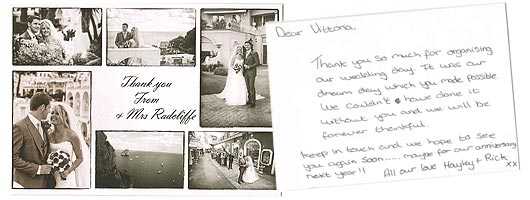 Thank you
From
& Mrs Radcliffe
Dear Vittoria,
Thank you so much for organising
our wedding day. It was our
dream day which you made possible
We couldn't have done it
without you and we will be
forever thankful.
keep in touch and we hope to see
you again soon..... maybe for our anniversary
next year!! All our love Hayley & Rick
xx